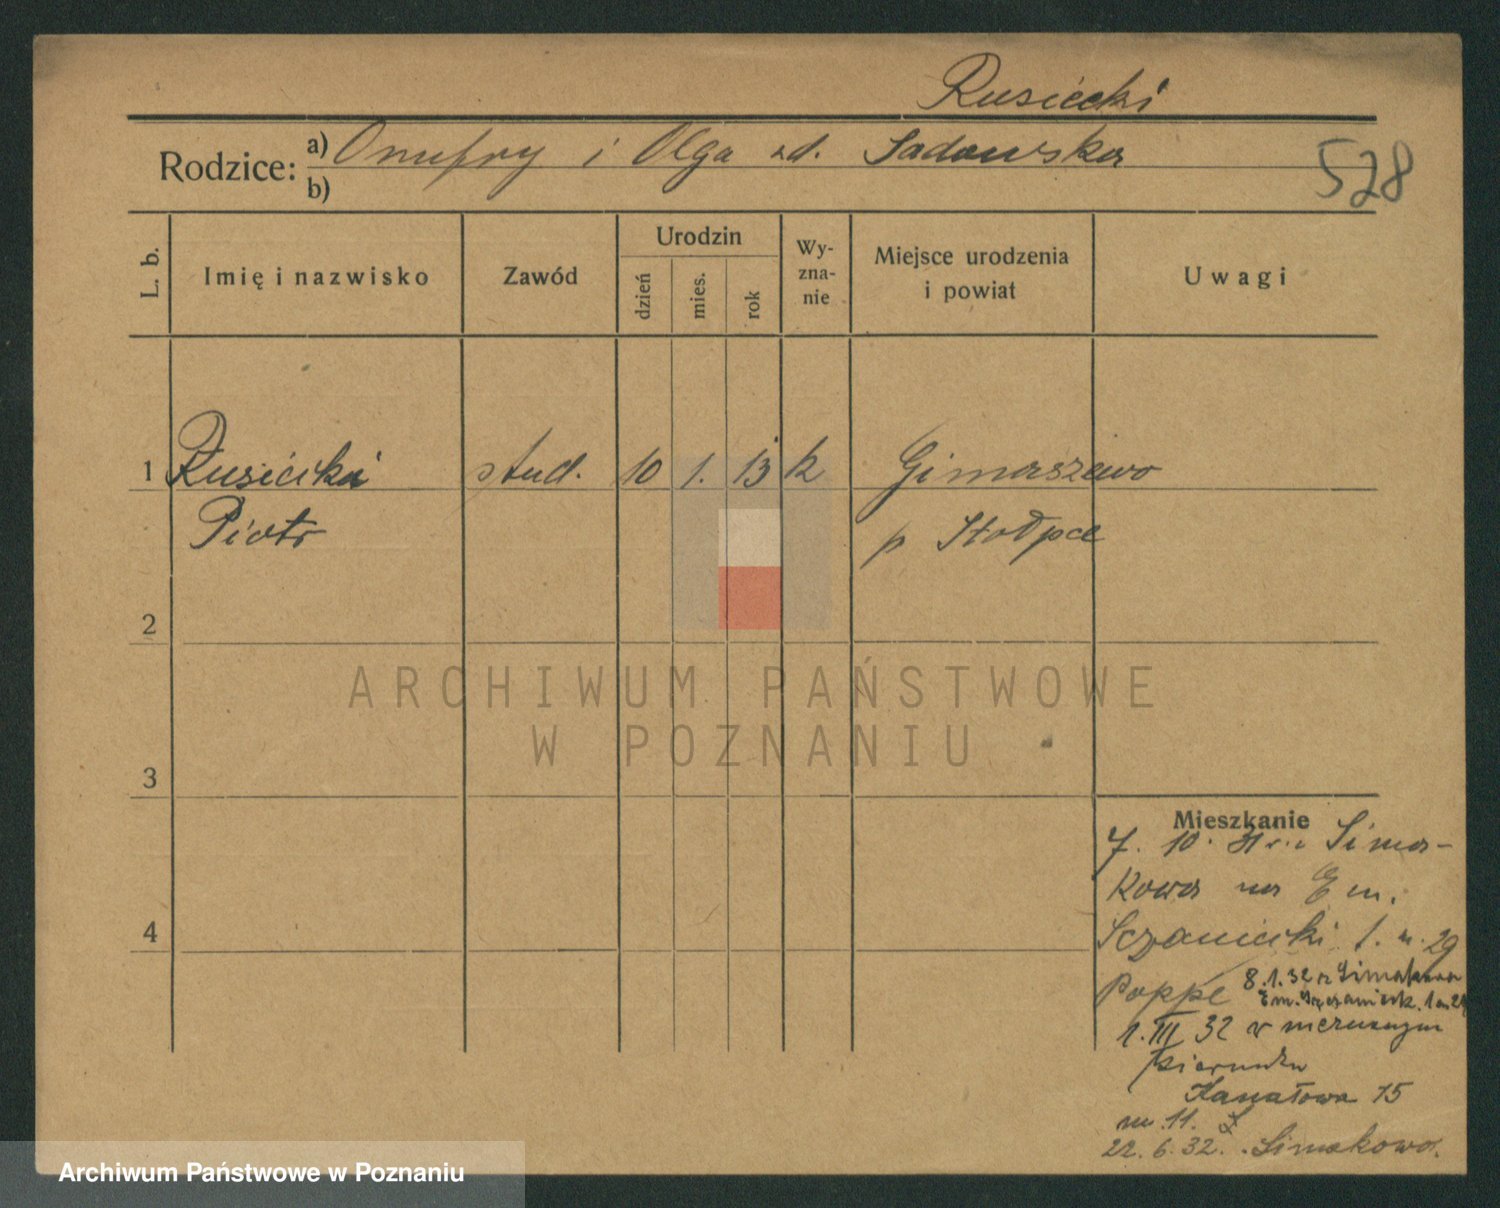 Rusiecki
Rodzice: a) Onufry i Olga zd. Sadowska
b)
528
L. b.
Imię i nazwisko
Zawód
Urodzin
dzień
mies.
rok
Wy-
zna-
nie
Miejsce urodzenia
i powiat
Uwagi
1 Rusiecki stud. 10 1. 13 k Gimaszewo
Piotr p Stołpce
2
3
4
ARCHIWUM PAŃSTWOWE
W POZNANIU
Mieszkanie
7. 10. 31 Sima-
kowa na Em.
Sczaniecki 1. m. 29
Poppe 8.1.32 z Simakowa
Em. Sczanieck. 1 m 29
1. III 32 w nieznanym
kierunku
Kanałowa 15
m. 11.
22. 6. 32. Simakowo.
Archiwum Państwowe w Poznaniu